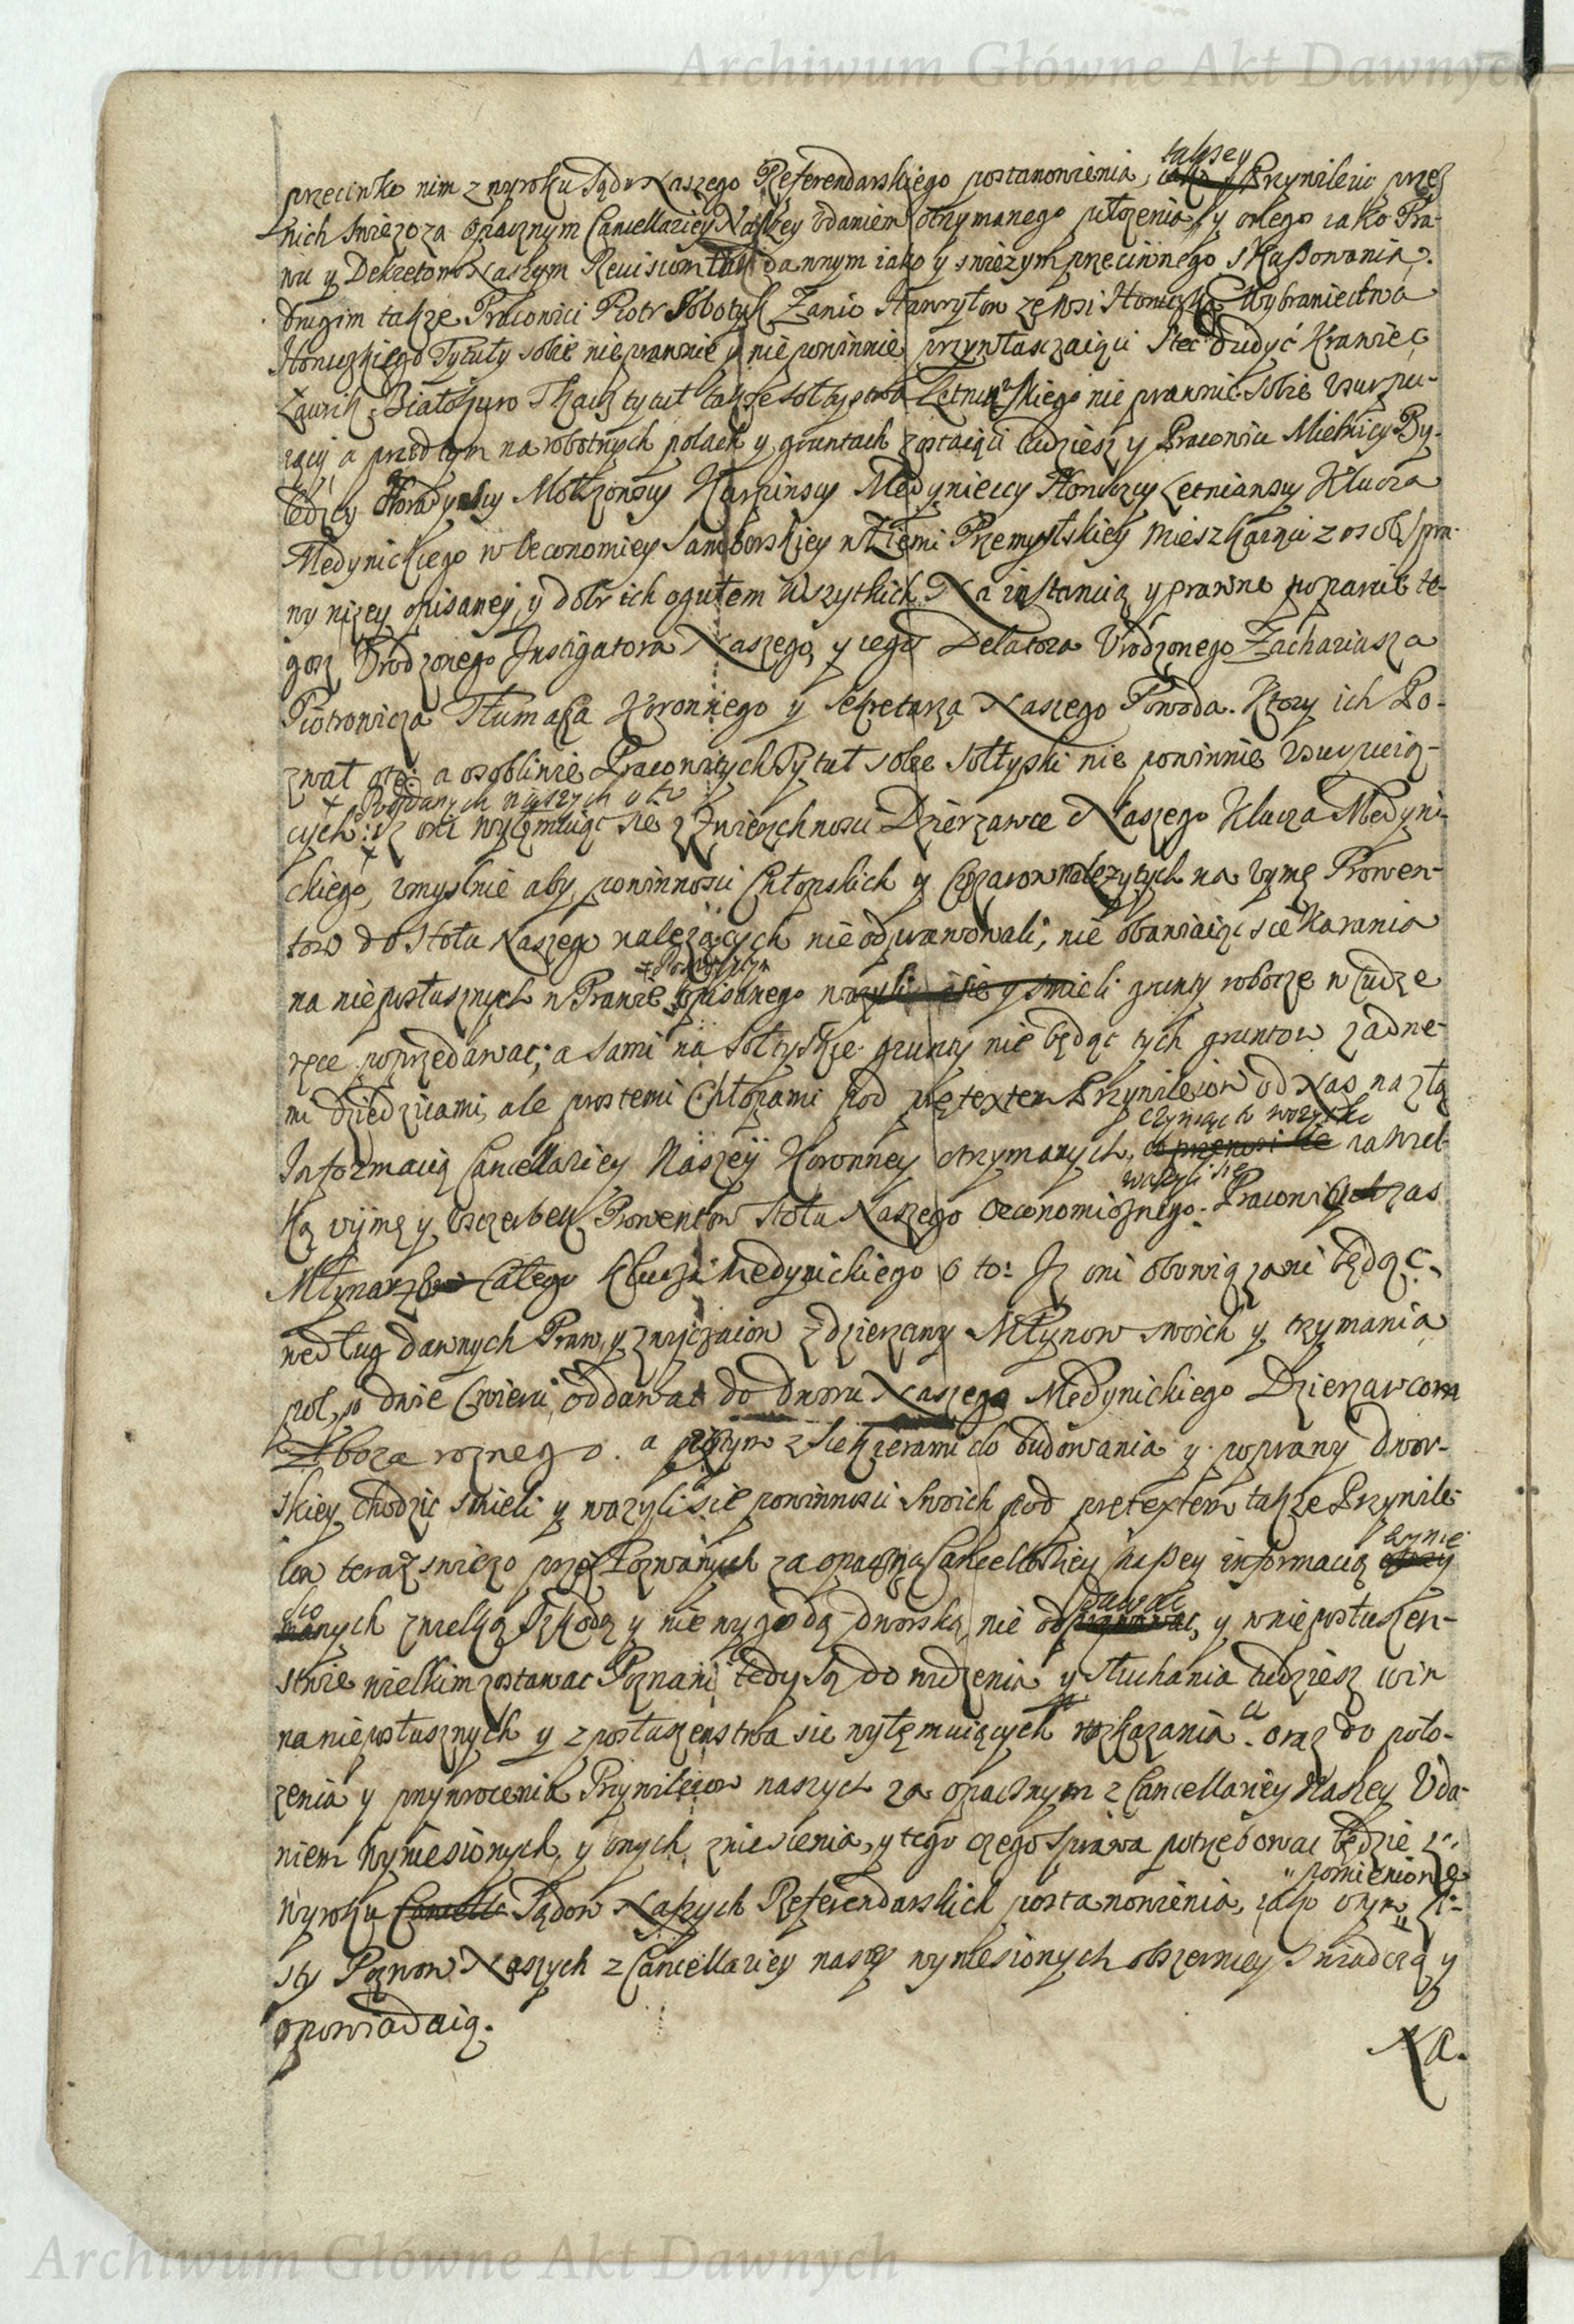 Archiwum Główne Akt Dawnych
takzey
przeciwko nim z wyroku Sądu Naszego Referendarskiego postanowienia, Przywileiu przez
nich swiezo za opacznym Cancellariey Naszey udaniem otrzymanego złozenia, y onego iako Pra-
wu y Dekretom Naszym Reuisorskim dawnym iako y swiezym przeciwnego skassowania.
Drugim takze Pracowici Piotr Sobotyk Zanio Hawryłow ze wsi Wybraniectwa
Tytuły sobie nieprawnie y nie powinnie przywłaszczaiący Stec Dudyć Krawiec
Ławrik Białoguro Tkacz tytuł takze sołtystwa Letnianskiego nie prawnie sobie Usurpu-
iący a przedtym na robotnych polach y gruntach zostaiący tudziesz y Pracowici Mielnicy By-
Horodyscy Medynieccy Letnianscy Klucza
Medynickiego w Oeconomiey Samborskiey w Ziemi Przemyslskiey mieszkaiący z osob spra-
wy nizey opisaney, y dobr ich ogułem Wszytkich. Na instancią y prawne poparcie te-
gosz Urodzonego Instigatora Naszego, y iego Delatora Urodzonego Zachariasza
Piotrowicza Tłumacza Koronnego y Sekretarza Naszego Powoda. Ktory ich Po-
zwał a osobliwie Pracowitych Tytuł sobie Sołtyski nie powinnie Usurpuią-
+ Poddanych naszych o to
cych: iz oni wyłamuiąc się z Zwierzchnosci Dzierzawce Naszego Klucza Medyni-
ckiego, umyslnie aby powinnosci Chłopskich y Czynszow nalezytych na uymę Prowen-
tow do Stołu Naszego nalezących nie odprawowali, nie obawiaiąc się Karania
na nieposłusznych w Prawie Pospolitym opisanego wazyli się y smieli grunty robocze w cudze
ręce poprzedawac, a sami na Sołtyskie grunty nie będąc tych gruntow zadne-
mi dziedzicami, ale prostemi Chłopami pod pretextem Przywileiow od Nas na złą
czyniąc to wszytko
Informacią Cancellariey Naszey Koronney otrzymanych, na wiel-
wazyli się
ką uymę y uszczerbek Prowentow Stołu Naszego Oeconomicznego. Pracowitych zas
Młynarzow całego Klucza Medynickiego o to: Iz oni obowiązani będąc
według dawnych Praw, y zwyczaiow z dzierzawy Młynow swoich y trzymania
pol, po dwie Cwierci oddawac do dworu Naszego Medynickiego Dzierzawcom
Zboza roznego. a przytym z Siekierami do budowania y poprawy dwor-
skiey chodzic smieli y wazyli się powinnosci swoich pod pretextem takze Przywile-
iow teraz swiezo przez Pozwanych za opaczną Cancellariey naszey informacią wynie-
sionych z wielką szkodą y niewygodą dworską, nie oddawac, y w nieposłuszen-
stwie wielkim zostawac Pozwani tedy są do widzenia y słuchania tudziesz win
na nieposłusznych y z posłuszenstwa się wyłamuiących wskazania. oraz do poło-
zenia y przywrocenia Przywileiow naszych za opacznym z Cancellariey Naszey Uda-
niem wyniesionych, y onych zniesienia, y tego czego sprawa potrzebowac będzie z
pomienione
Wyroku Sądow Naszych Referendarskich postanowienia, iako o tym Li-
sty Pozwow Naszych z Cancellariey naszey wyniesionych obszerniey Swiadczą y
opowiadaią.
Na.
Archiwum Główne Akt Dawnych